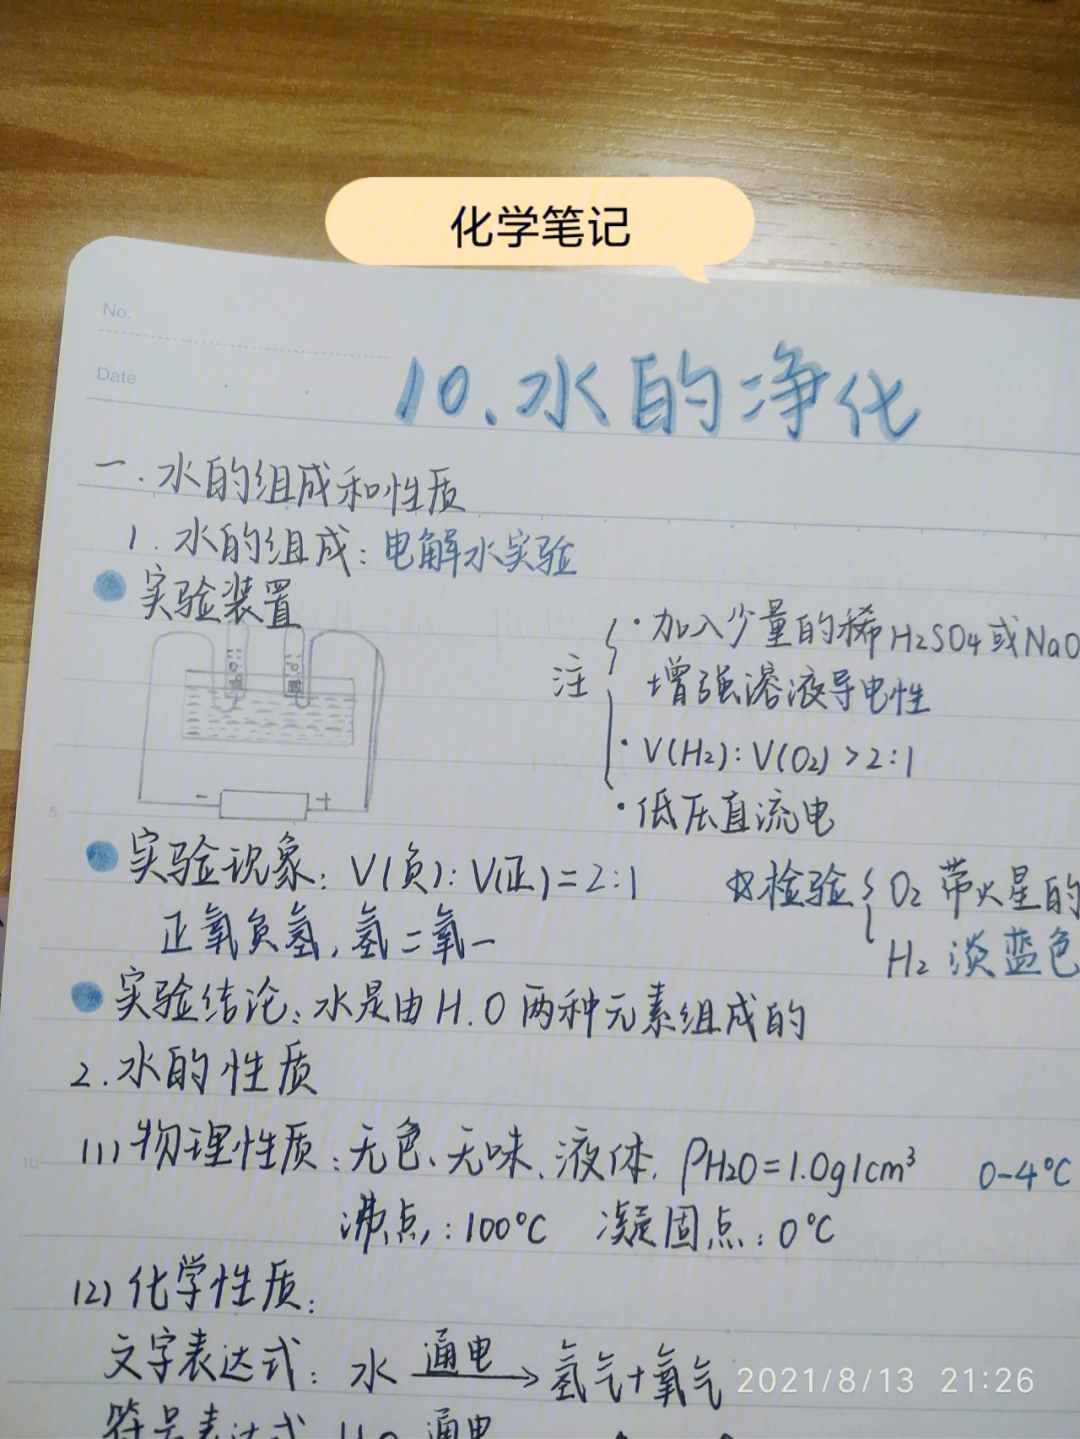 化学笔记
No.
Date
10.水的净化
一.水的组成和性质
1.水的组成:电解水实验
实验装置
注
·加入少量的稀H₂SO₄或NaO
增强溶液导电性
·V(H₂):V(O₂)>2:1
·低压直流电
- +
5
实验现象:V(负):V(正)=2:1
正氧负氢,氢二氧一
☆检验
O₂ 带火星的
H₂ 淡蓝色
实验结论:水是由H.O两种元素组成的
2.水的性质
10
(1)物理性质:无色、无味、液体. ρH₂O=1.0g/cm³ 0-4℃
沸点:100℃ 凝固点:0℃
(2)化学性质:
文字表达式:水 通电→ 氢气+氧气
2021/8/13 21:26
符号表达式 H₂O 通电